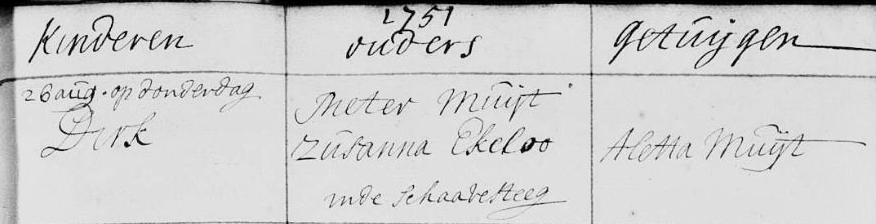 1751
Kinderen ouders getuijgen
26 aug. op donderdag
Dirk
Pieter Muijt
Zusanna Ekeloo
Aletta Muijt
inde Schaavesteeg